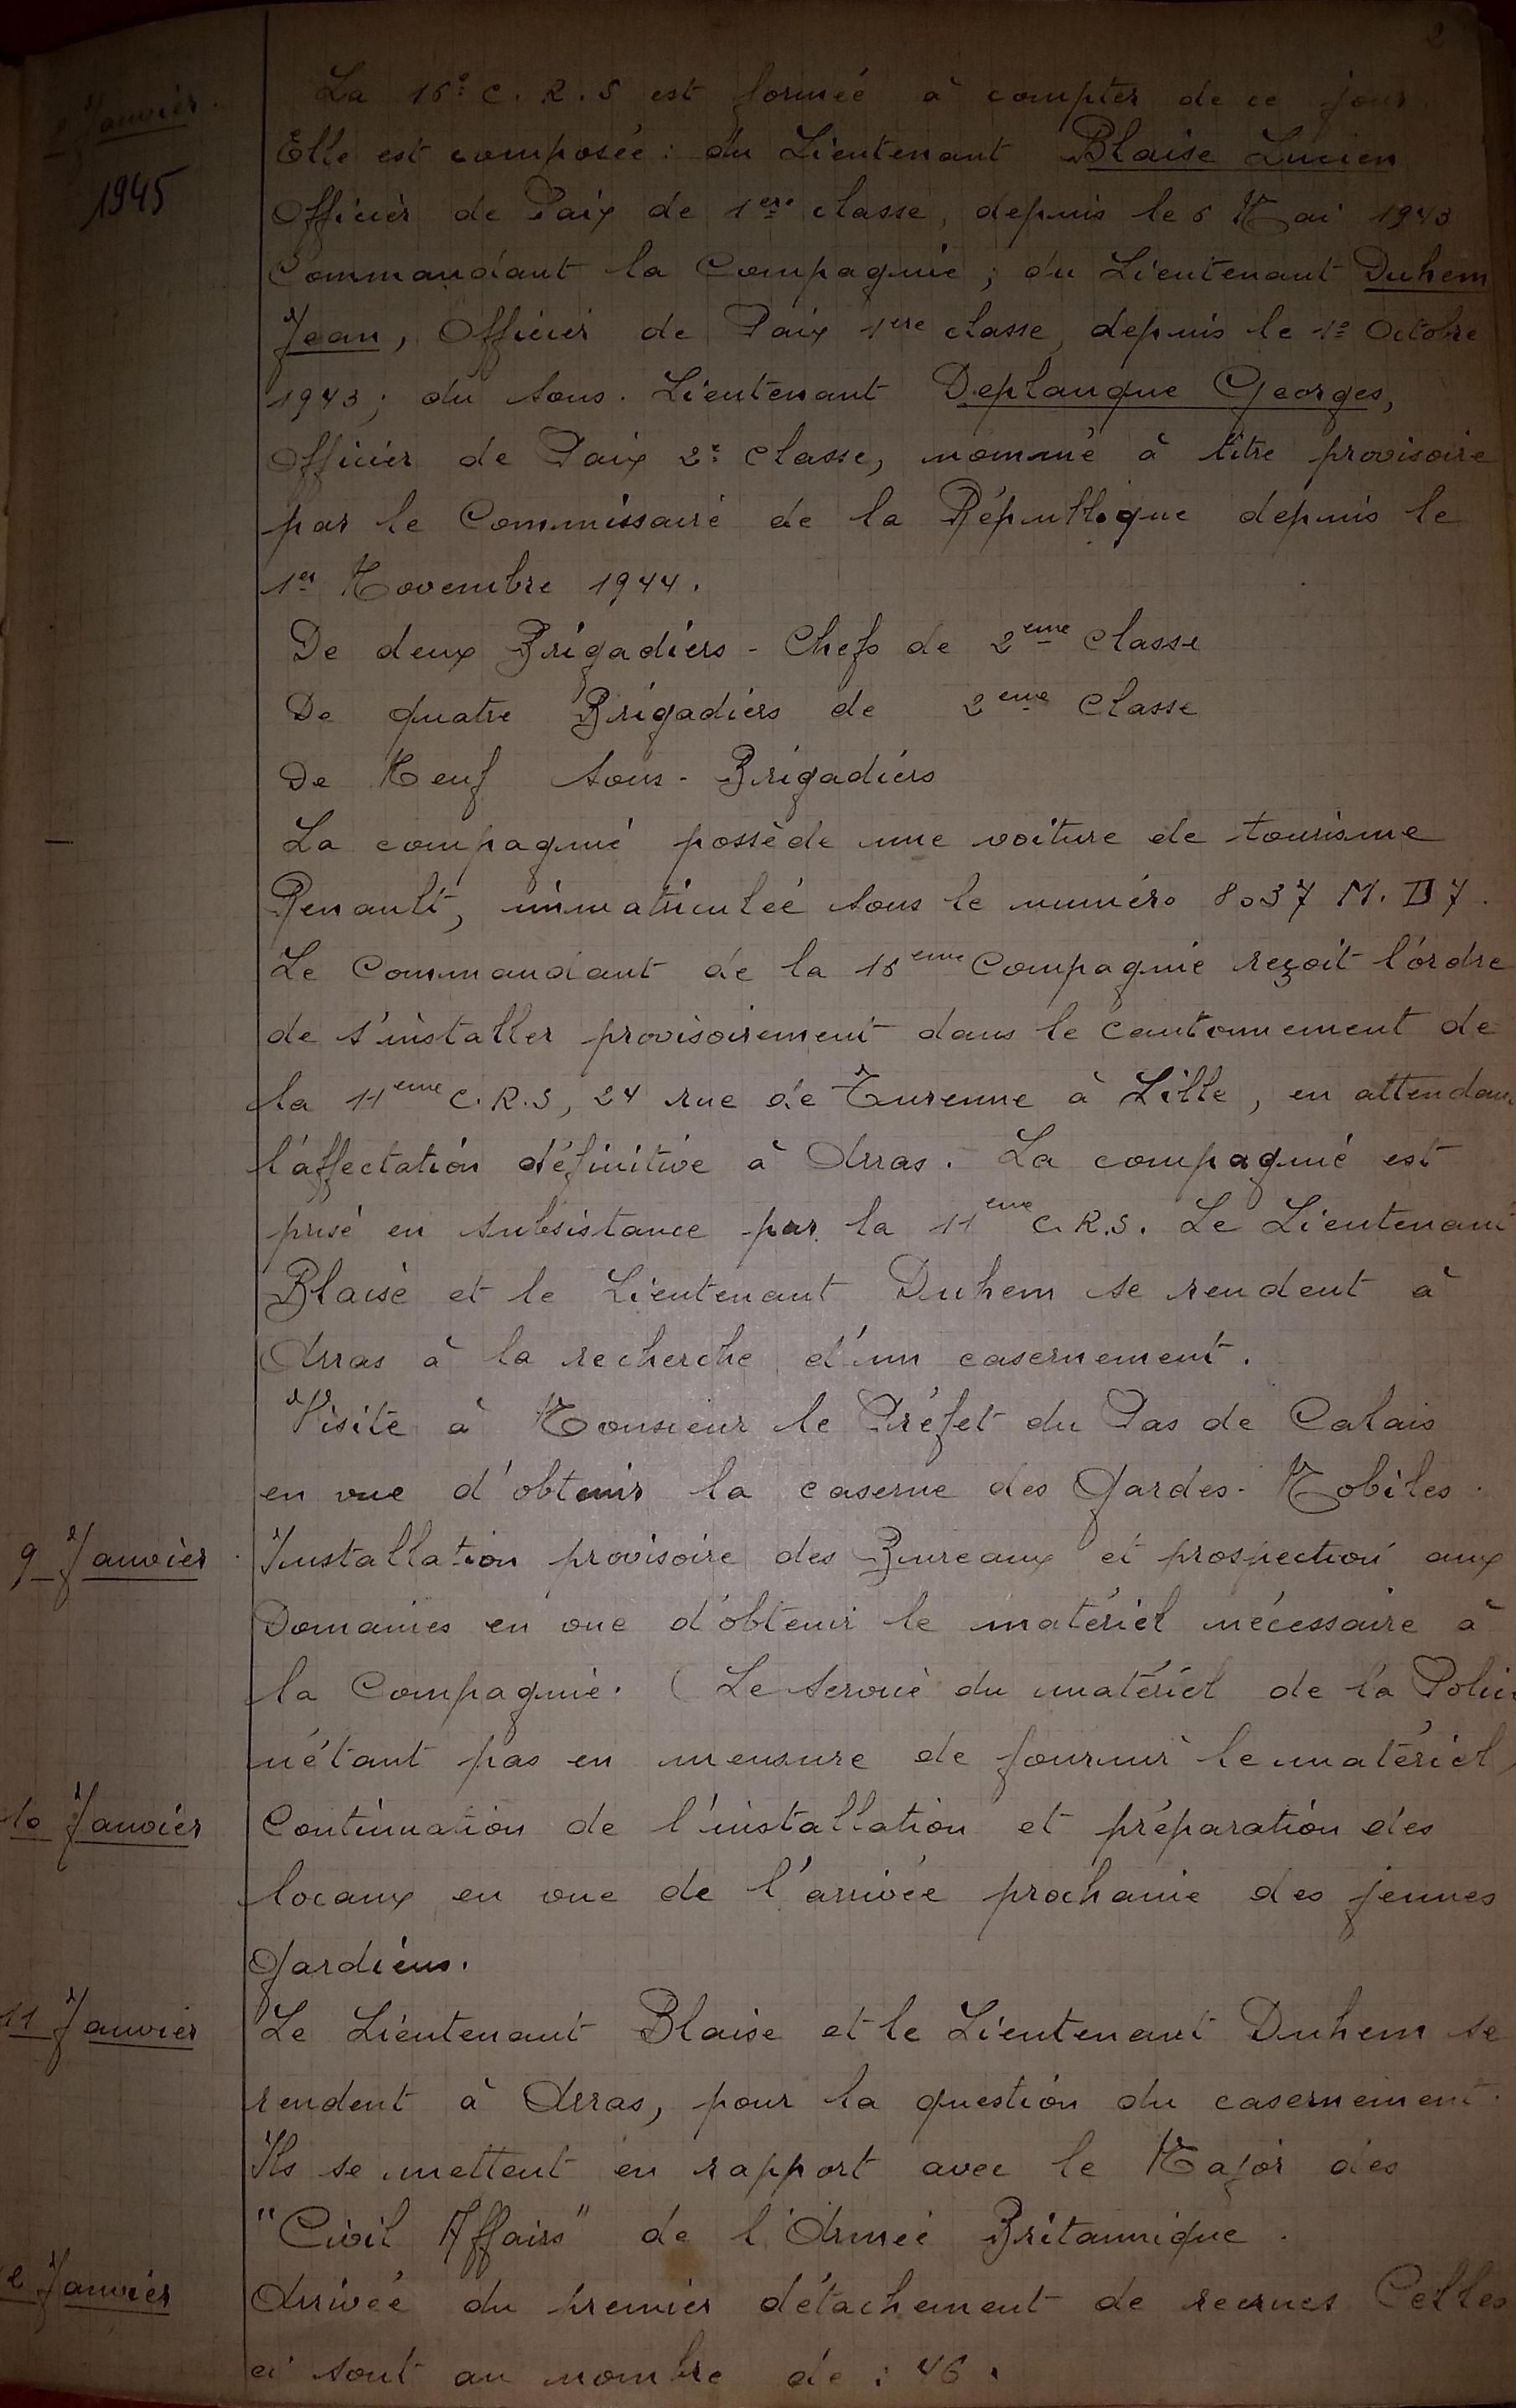 2
8 Janvier.
1945
La 16e C. R. S est formée à compter de ce jour.
Elle est composée : du Lieutenant Blaise Lucien
Officier de Paix de 1ere classe, depuis le 6 Mai 1943
Commandant la Compagnie ; du Lieutenant Duhem
Jean, Officier de Paix 1ere classe, depuis le 1e Octobre
1943 ; du Sous. Lieutenant Deplanque Georges,
Officier de Paix 2e classe, nommé à titre provisoire
par le Commissaire de la République depuis le
1er Novembre 1944.
De deux Brigadiers - Chefs de 2eme classe
De quatre Brigadiers de 2eme Classe
De Neuf Sous - Brigadiers
La compagnie possède une voiture de tourisme
Renault, immatriculée sous le numéro 8037 M. D 7.
Le Commandant de la 16eme Compagnie reçoit l'ordre
de s'installer provisoirement dans le cantonnement de
la 11eme C.R.S, 24 rue de Turenne à Lille, en attendant
l'affectation définitive à Arras. La compagnie est
prise en subsistance par la 11eme C.R.S. Le Lieutenant
Blaise et le Lieutenant Duhem se rendent à
Arras à la recherche d'un casernement.
Visite à Monsieur le Préfet du Pas de Calais
en vue d'obtenir la caserne des Gardes - Mobiles.
9 Janvier. Installation provisoire des Bureaux et prospection aux
Domaines en vue d'obtenir le matériel nécessaire à
la Compagnie. (Le Service du matériel de la Police
n'étant pas en mensure de fournir le matériel)
10 Janvier Continuation de l'installation et préparation des
locaux en vue de l'arrivée prochaine des jeunes
Gardiens.
11 Janvier Le Lieutenant Blaise et le Lieutenant Duhem se
rendent à Arras, pour la question du casernement.
Ils se mettent en rapport avec le Major des
"Civil Affairs" de l'Armée Britannique.
2 Janvier Arrivée du premier détachement de recrues Celles
ci sont au nombre de : 46.